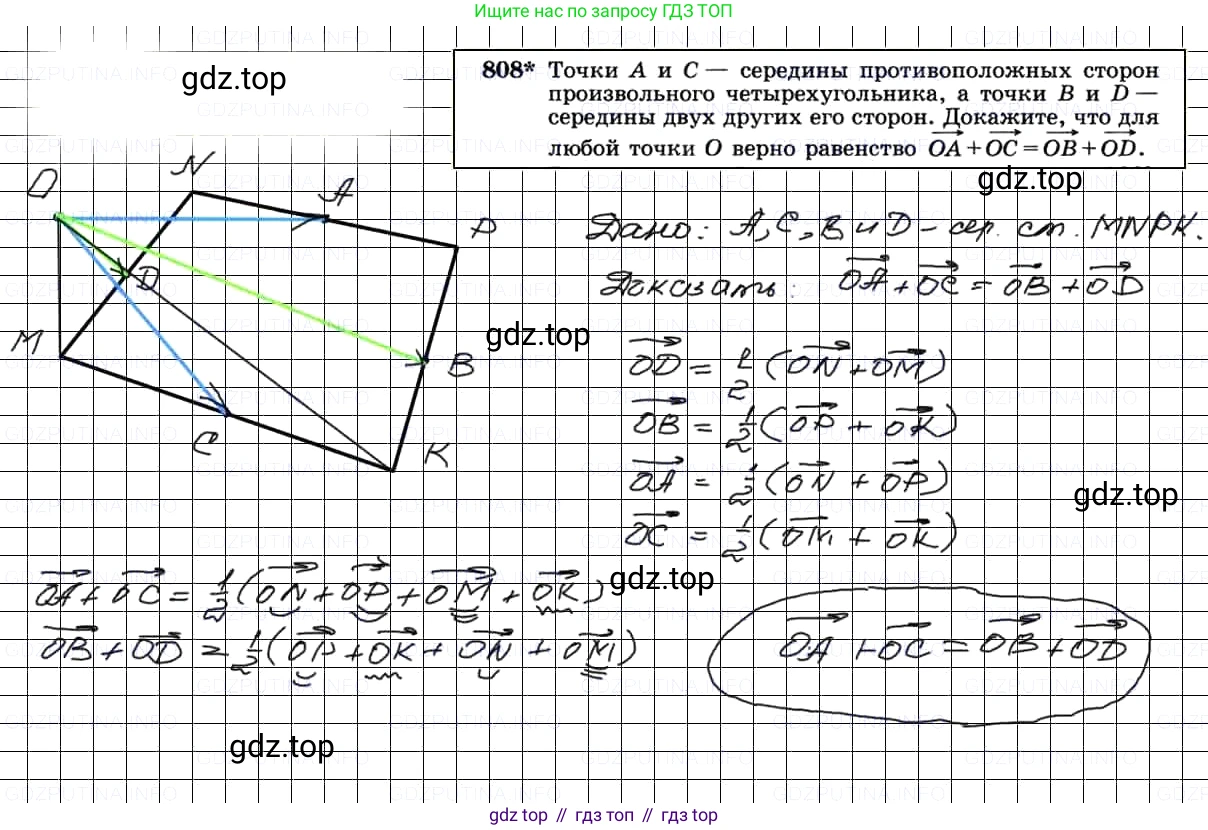 Ищите нас по запросу ГДЗ ТОП
gdz.top
808* Точки A и C — середины противоположных сторон
произвольного четырехугольника, а точки B и D —
середины двух других его сторон. Докажите, что для
любой точки O верно равенство OA + OC = OB + OD.
gdz.top
O N A P
D
M B
C K
gdz.top
Дано: A, C, B и D – сер. ст. MNPK.
Доказать: OA + OC = OB + OD
OD = 1/2 (ON + OM)
OB = 1/2 (OP + OK)
OA = 1/2 (ON + OP)
gdz.top
OC = 1/2 (OM + OK)
gdz.top
OA + OC = 1/2 (ON + OP + OM + OK)
OB + OD = 1/2 (OP + OK + ON + OM)
OA + OC = OB + OD
gdz.top
gdz.top // гдз топ // гдз.top